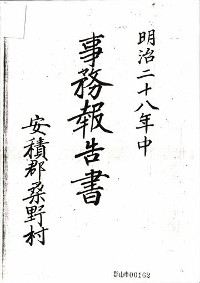 明治二十八年中
事務報告書
安積郡桑野村
郡山市00162